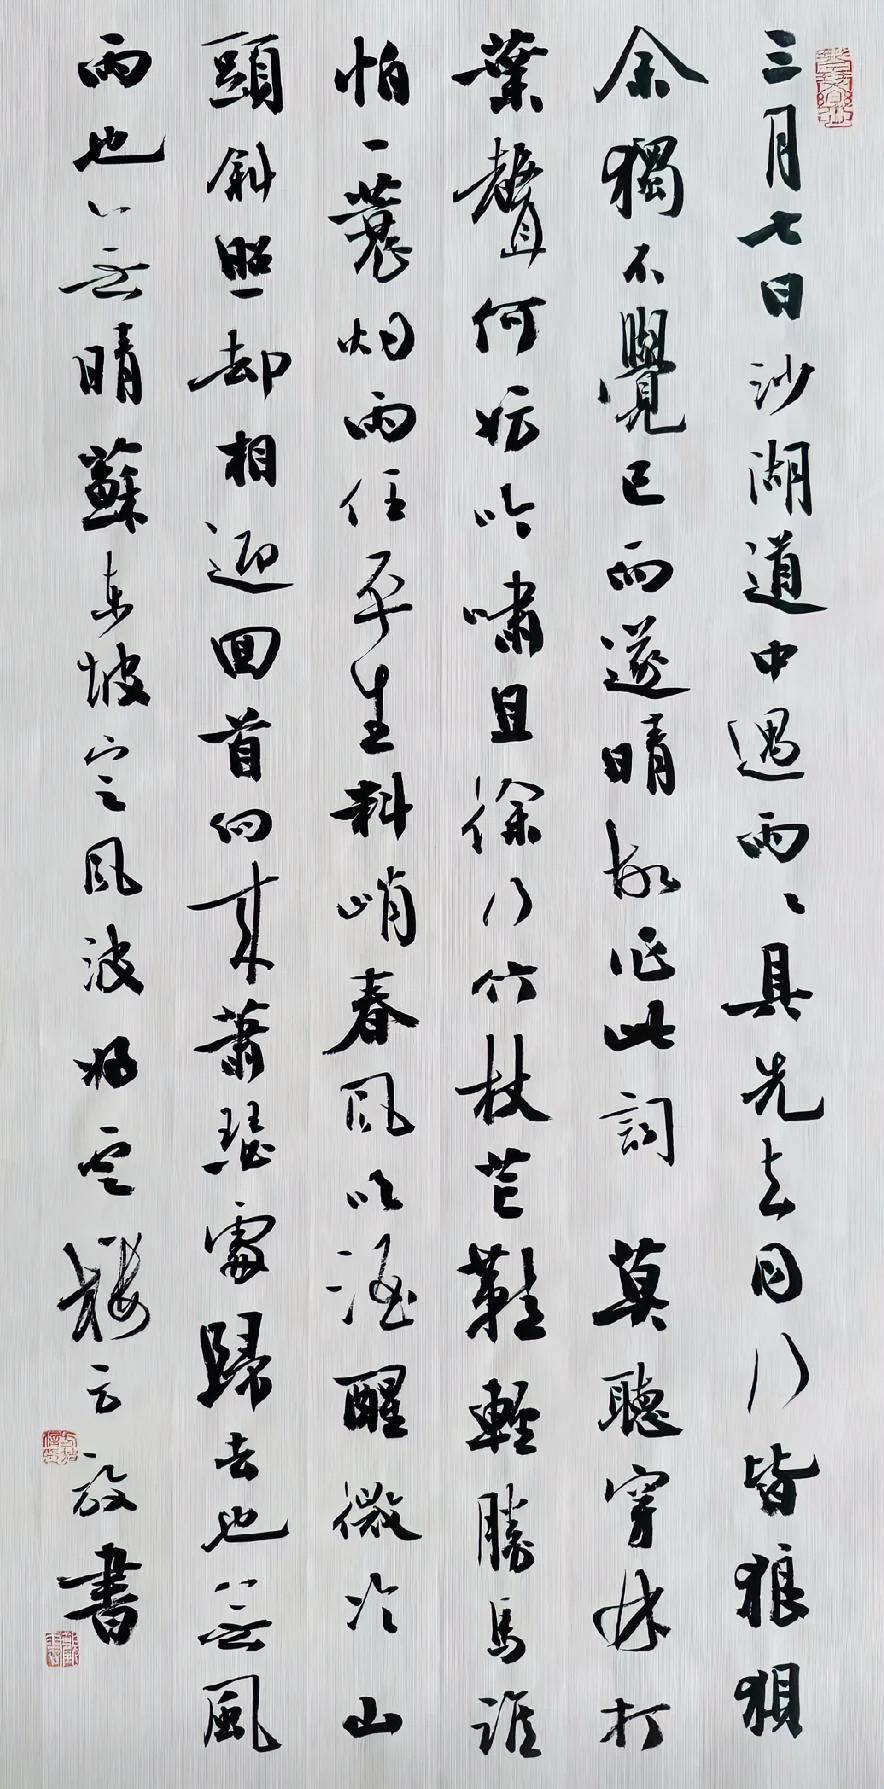 三月七日沙湖道中遇雨〻具先去同行皆狼狽
余獨不覺已而遂晴故作此詞 莫聽穿林打
葉聲何妨吟嘯且徐行竹杖芒鞋輕勝馬誰
怕一蓑烟雨任平生料峭春風吹酒醒微冷山
頭斜照却相迎回首向來蕭瑟處歸去也無風
雨也無晴蘇東坡定風波 書